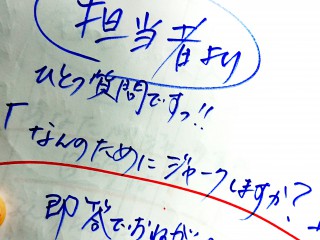 担当者より
ひとつ質問ですっ!!
「なんのために ジャークしますか?
即答でおねが